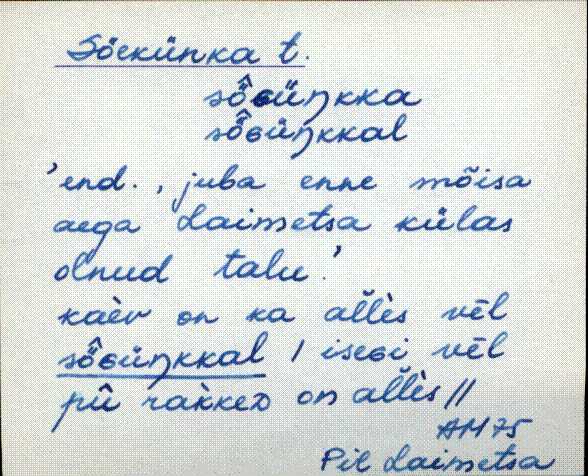 Söekünka t.
sö̂ɢüŋkka
sö̂ɢüŋkkal
'end., juba enne mõisa
aega Laimetsa külas
olnud talu.'
kaèv on ka al̆lès vēl
sö̂ɢüŋkkal / iseɢi vēl
pū̂ ràkkeᴅ on al̆lès //
AM 75
Pil Laimetsa